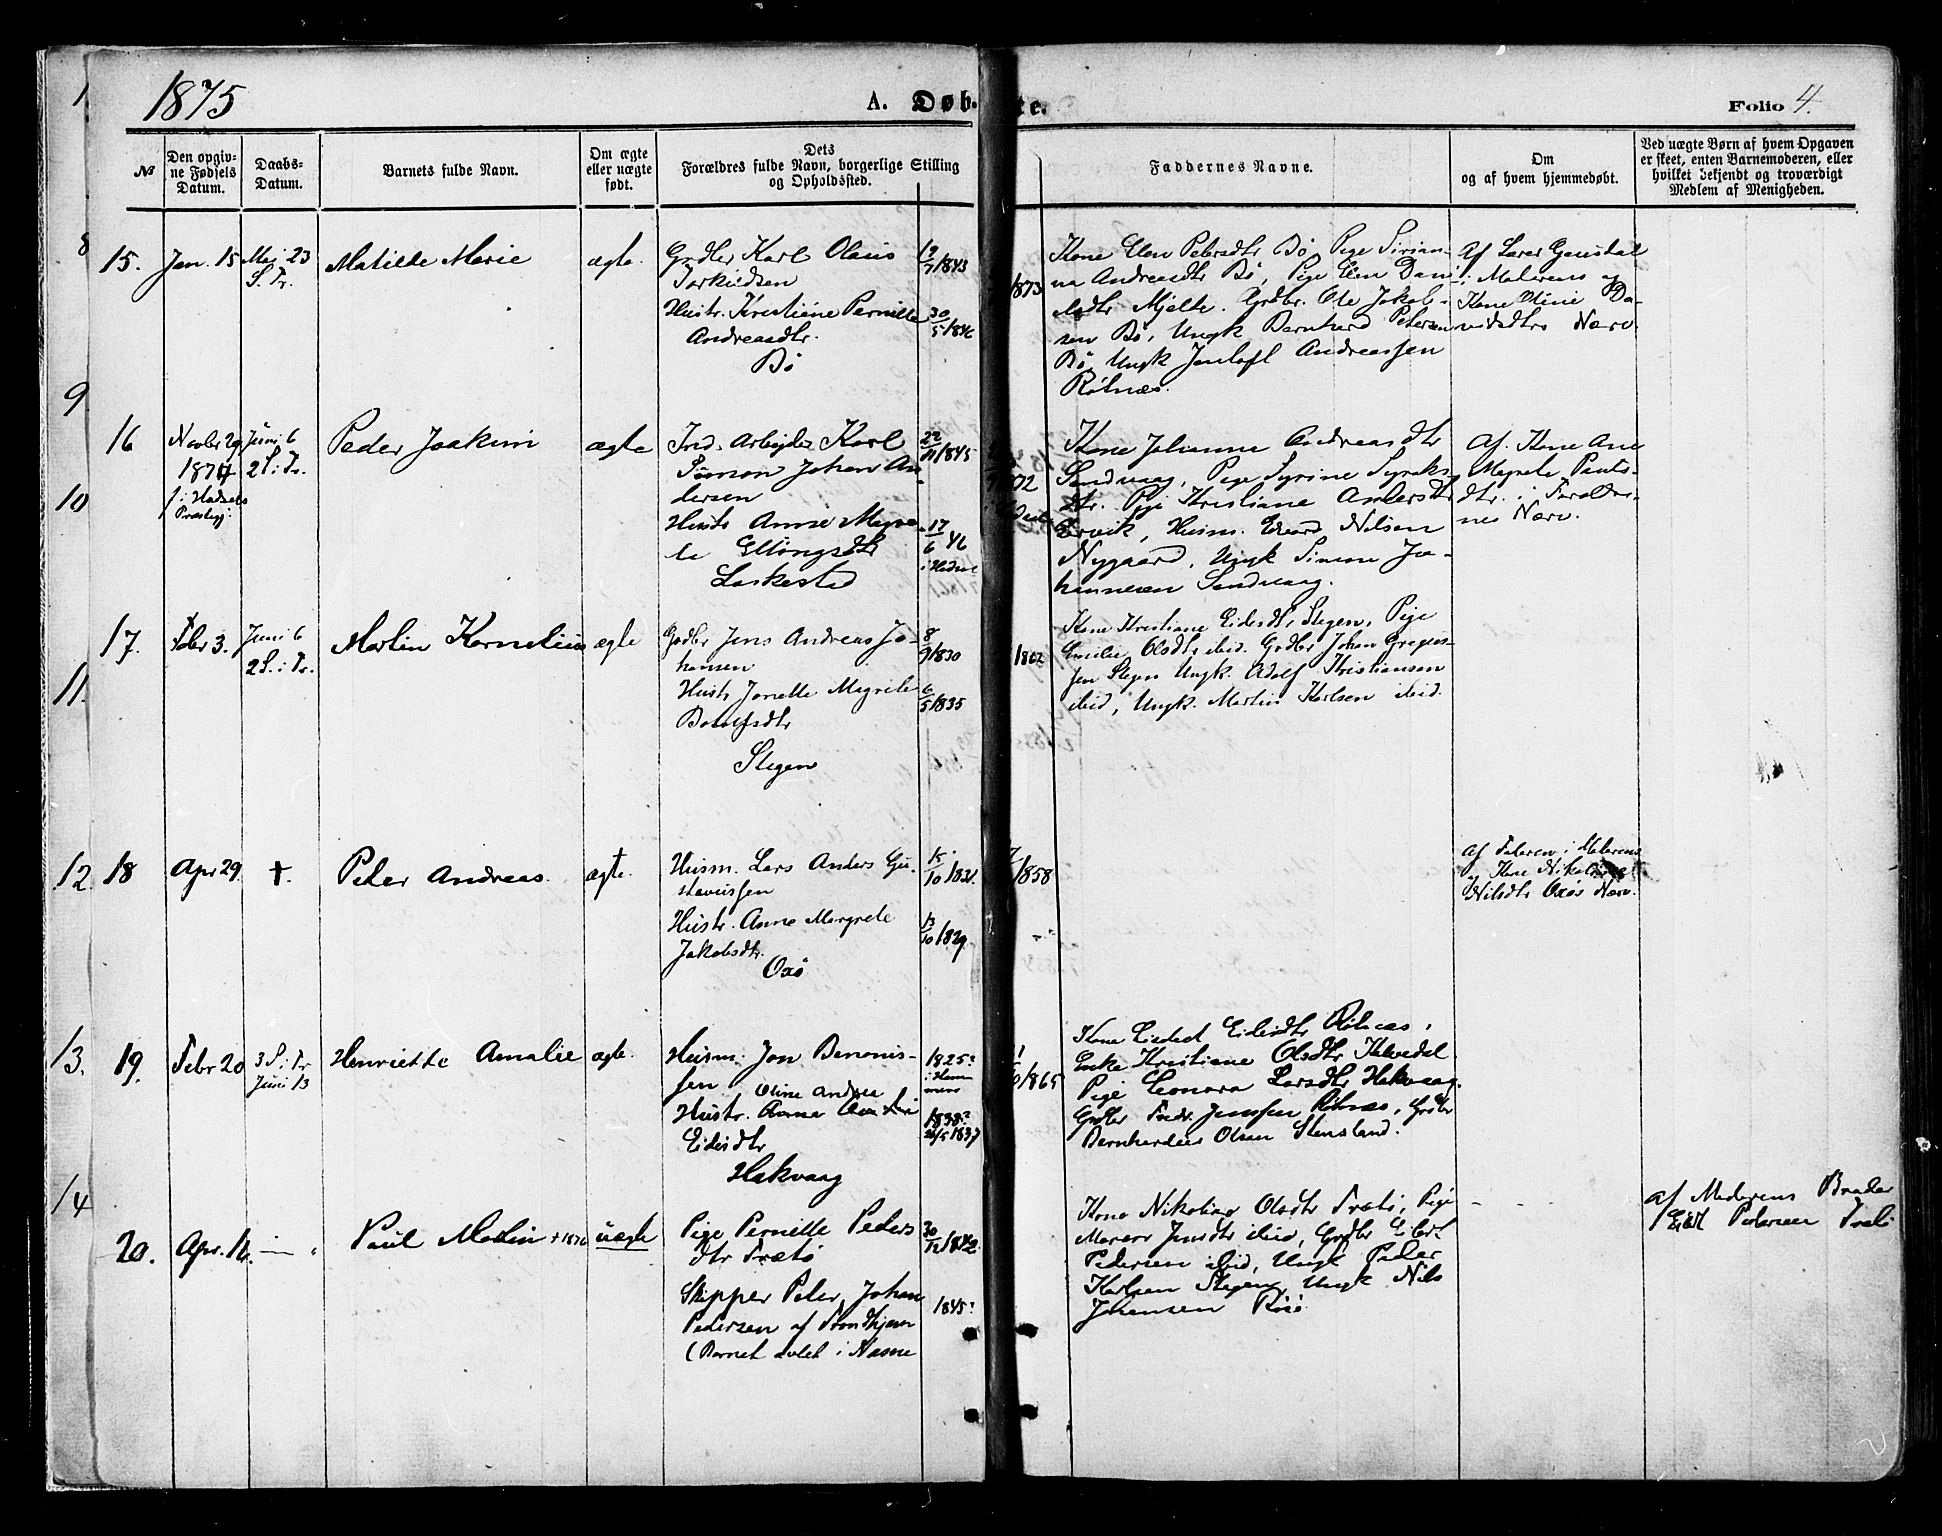 1875
A. Døb-
te.
Folio 4.
№
Den opgiv-
ne Fødsels
Datum.
Daabs-
Datum.
Barnets fulde Navn.
Om ægte
eller uægte
født.
Dets
Forældres fulde Navn, borgerlige Stilling
og Opholdssted.
Faddernes Navne.
Om
og af hvem hjemmedøbt.
Ved uægte Børn af hvem Opgaven
er skeet, enten Barnemoderen, eller
hvilket bekjendt og troværdigt
Medlem af Menigheden.
8
9
10
11.
12.
13.
14
15.
Jan. 15
Mai 23
S. Tr.
Matilde Marie
ægte.
Grdbr Karl Olaus
Torkildsen
Hustr. Kristiene Pernille
Andreasdtr.
Bø
19/7/1843
30/5/1846
1873
Kone Elen Petersdtr Bø, Pige Sirian-
na Andreasdtr Bø, Pige Elen Dani-
elsdtr Mjelle. Grdbr. Ole Jakob-
sen Bø, Ungk Bernhard Petersen
Bø, Ungk Jentoft Andreassen
Rotnæs.
Af Lærer Gausdal
i Moderens og
Kone Oline Da-
vidsdtrs Nærv.
16
Novbr 29
1874
i Hadsels
Præstegj:
Juni 6
2 S. i Tr.
Peder Joakim
ægte
Ind. Arbejder Karl
Simon Johan An-
dersen
Hustr Anne Magre-
te Ellingsdtr
Laskestad
22/11/1845
17/6 46
i Hadsel
Kone Johanne Andreasdtr
Sandvaag, Pige Syrine Syraks-
dtr. Pige Kristiane Andersdtr
Husm. Edvard Nilsen
Nygaard, Ungk Simon Jo-
hannesen Sandvaag.
Af Kone Ane
Magrete Pauls-
dtr. i Foreldre-
nes Nærv.
17.
Febr 3.
Juni 6
2 S. i Tr.
Martin Kornelius
ægte
Grdbr Jens Andreas Jo-
hansen
Hustr Jonette Magrete
Stegen
8/9/1830
6/5/1835
1862
Kone Kristiane Eidisdtr, Stegen, Pige
Emilie Olsdtr ibid. Grdbr Johan Greges-
sen Stegen Ungk. Adolf Kristiansen
ibid, Ungk. Martin Karlsen ibid.
18
Apr 29
+.
Peter Andreas.
ægte.
Husm. Lars Anders Gu-
stavussen
Hustr. Anne Margrete
Jakobsdtr.
Oxø
15/10/1831.
13/10/1829.
1858
Af Faderen i Moderens
og Kone
Nilsdtr Oxøs Nærv.
19.
Febr 20
3 S. i Tr
Juni 13
Henriette Amalie
ægte.
Husm. Jon Benonis-
sen
Oline Andrea
Hustr. Anna
Eidisdtr
Hakvaag
1825?
i Ham-
merø
1838?
26/5 1837
1865
Kone Eidisdtr Rotnæs,
Enke Kristiane Olsdtr Kalvedal
Pige Leonora Larsdtr Hakvaag.
Grdbr Fredr. Jenssen Rotnæs, Grdbr
Bernhardus Olsen Stensland.
20.
Apr. 16.
Paul Martin + 1876
uægte
Pige Pernille Peders
dtr Trætø
Skipper Peter Johan
Pedersen af Trondhjem
(Barnet avlet i Namne
30/12/1842
1845?
Kone Nikoline Olsdtr Trætø, Pige
Maren Jensdtr ibid, Grdbr Eilert
Pedersen ibid, Ungk Peder
Karlsen Stegen, Ungk Nils
Johansen
Af Moderens Broder
Eilert Pedersen Trætø